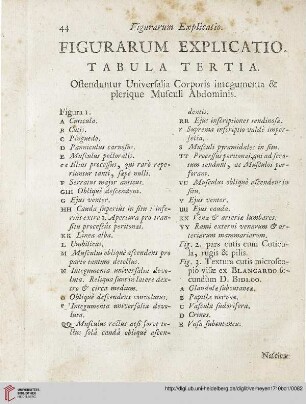 44 Figurarum Explicatio.
FIGURARUM EXPLICATIO.
TABULA TERTIA.
Ostenduntur Universalia Corporis integumenta &
plerique Musculi Abdominis.
Figura 1.
A Cuticula.
B Cutis.
C Pinguedo.
D Panniculus carnosus.
E Musculus pectoralis.
ee Illius processus, qui raro repe-
riuntur tanti, sæpe nulli.
F Serratus major anticus.
GH Obliquè descendens.
G Ejus venter.
HH Cauda superius in sinu: in-
ferius extra I. Apertura pro tran-
situ processus peritonæi.
KK Linea alba.
L Umbilicus.
M Musculus obliquè ascendens pro
parte tantum detectus.
N Integumenta universalia devo-
luta. Reliqua sunt in latere dex-
tro & circa medium.
O Obliquè descendens convolutus.
P Integumenta universalia devo-
luta.
QQ Musculus rectus absque forte te-
ctus solâ caudâ obliquè ascen-
dentis.
RR Ejus inscriptiones tendinosæ.
r Suprema inscriptio valdè imper-
fecta.
S Musculus pyramidalis: in situ.
TT Processus peritonæi, qui ad scro-
tum tendunt, ac Musculus per-
forant.
VU Musculus obliquè ascendens in
situ.
V Ejus venter.
UU Ejus cauda.
XX Venæ & arteriæ lumbares.
YY Rami externi venarum & ar-
teriarum mammariarum.
Fig. 2. pars cutis cum Cuticu-
la, rugis & pilis.
Fig. 3. Textura cutis microsco-
pio visæ ex BLANCARDO se-
cundum D. BIDLOO.
A Glandulæ subcutaneæ.
B Papillæ nerveæ.
C Vascula sudorifera.
D Crines.
E Vasa subcutanea.
http://digi.ub.uni-heidelberg.de/diglit/verheyen1710bd1/0082